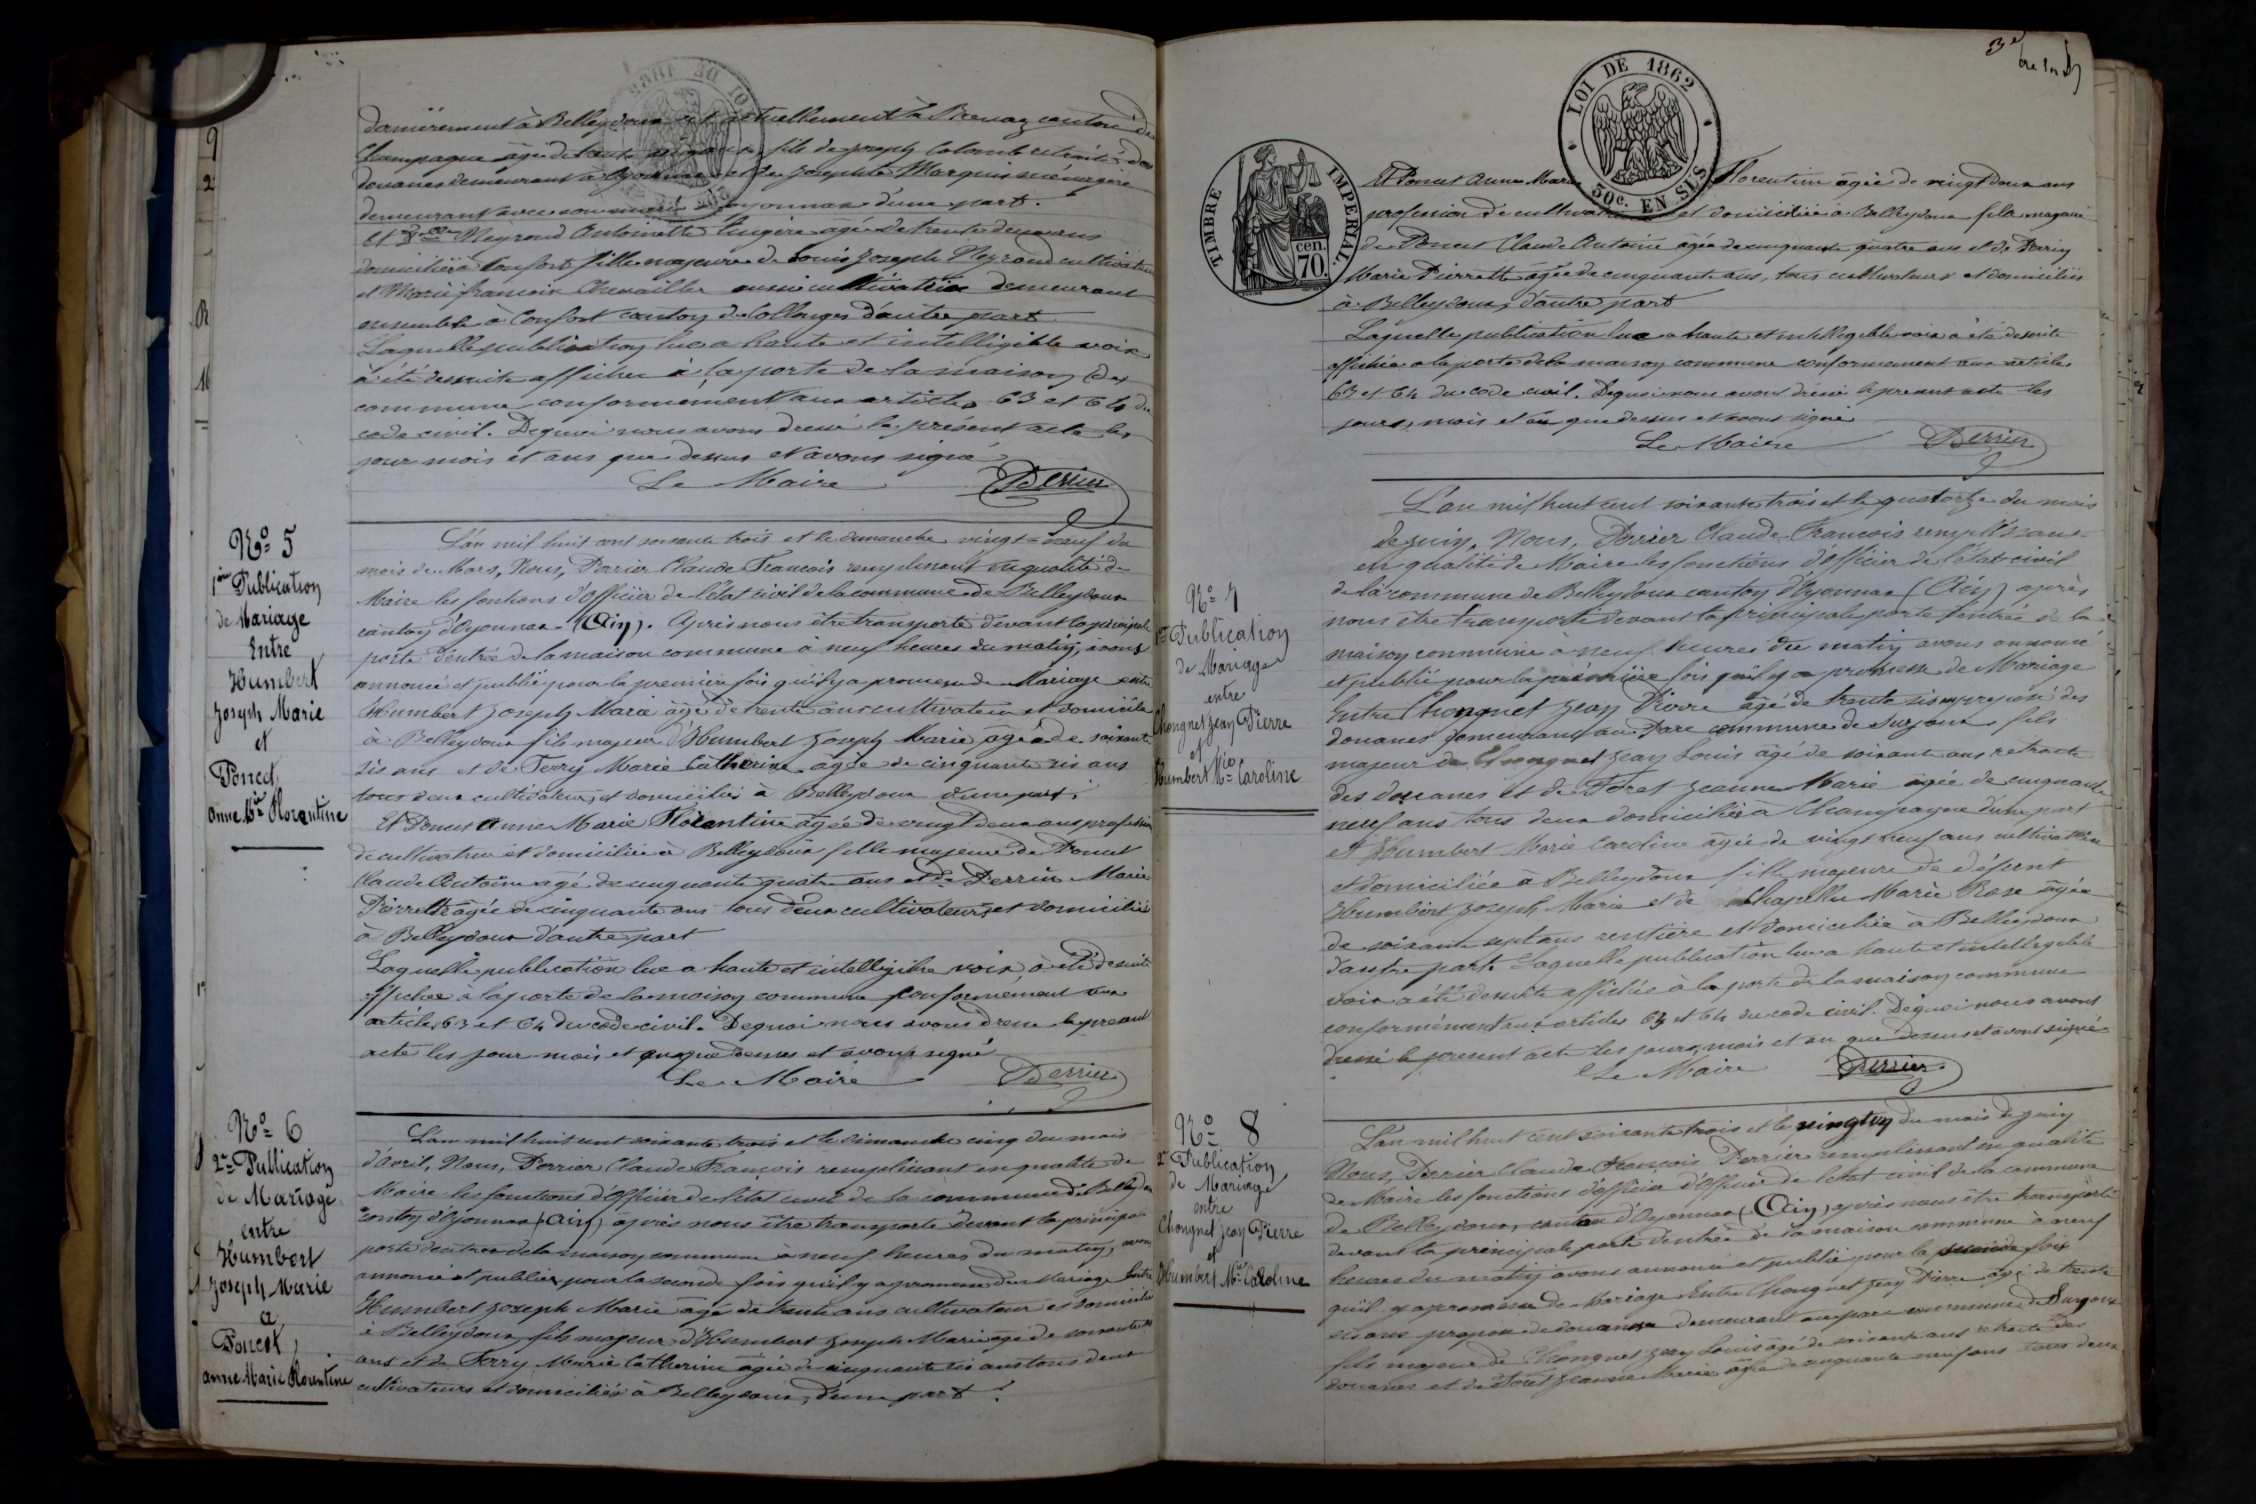 dernièrement à Belleydoux et actuellement à Brenaz canton de
Champagne âgé de trente ans, fils de Joseph Colomb retraité des
douanes demeurant à Oyonnax et de Josephte Marquis ménagère
demeurant avec son mari Oyonnax d'une part.
Et Delle Neyroud Antoinette lingère âgée de trente deux ans
domiciliée à Confort fille majeure de Louis Joseph Neyroud cultivateur
et Marie françoise Chevallier aussi cultivatrice demeurant
ensemble à Confort canton de Collonges d'autre part
Laquelle publication lue a haute et intelligible voix
a été desuite affichée à la porte de la maison
commune conformement aux articles 63 et 64 du
code civil. Dequoi nous avons dressé le présent acte les
jour mois et ans que dessus et avons signé
Le Maire Perrier
No 5
1ère Publication
de Mariage
Entre
Humbert
Joseph Marie
et
Poncet
Anne Mie Florentine
L'an mil huit cent soixante trois et le dimanche vingt-neuf du
mois de Mars, Nous, Perrier Claude François remplissant en qualité de
Maire les fontions d'Officier de l'état civil de la commune de Belleydoux
canton d'Oyonnax (Ain). Après nous être transporté devant la principale
porte d'entrée de la maison commune à neuf heures du matin, avons
annoncé et publié pour la première fois qu'il y a promesse de Mariage entre
Humbert Joseph Marie âgé de trente ans cultivateur et domicilié
à Belleydoux fils majeur d'Humbert Joseph Marie âgé de soixante
six ans et de Ferry Marie Catherine âgée de cinquante six ans
tous deux cultivateurs et domiciliés à Belleydoux d'une part;
Et Poncet Anne Marie Florentine âgée de vingt deux ans profession
de cultivatrice et domiciliée à Belleydoux fille majeure de Poncet
Claude Antoine âgé de cinquante quatre ans et de Perrin Marie
Pierrette âgée de cinquante ans tous deux cultivateurs et domiciliés
à Belleydoux d'autre part
Laquelle publication lue a haute et intelligible voix a été desuite
affichée à la porte de la maison commune conformément aux
articles 63 et 64 du code civil. Dequoi nous avons dressé le présent
acte les jour mois et que dessus et avons signé
Le Maire Perrier
No 6
2e Publication
de Mariage
entre
Humbert
Joseph Marie
a
Poncet
Anne Marie Florentine
L'an mil huit cent soixante trois et le dimanche cinq du mois
d'avril, Nous, Perrier Claude François remplissant en qualité de
Maire les fonctions d'Officier de l'état civil de la commune de Belleydoux
canton d'Oyonnax (Ain) après nous être transporté devant la principale
porte d'entrée de la maison commune à neuf heures du matin, avons
annoncé et publier pour la seconde fois qu'il y a promesse de Mariage Entre
Humbert Joseph Marie âgé de trente ans cultivateur et domicilié
à Belleydoux, fils majeur d'Humbert Joseph Marie âgé de soixante six
ans et de Ferry Marie Catherine âgée de cinquante six ans tous deux
cultivateurs et domiciliés à Belleydoux, d'une part;
3e
LOI DE 1862
50c. EN SUS
TIMBRE IMPERIAL
cen. 70.
Et Poncet Anne Marie Florentine âgée de vingt deux ans
profession de cultivatrice et domiciliée à Belleydoux fille majeure
de Poncet Claude Antoine âgée de cinquante quatre ans et de Perrin
Marie Pierrette âgée de cinquante ans, tous cultivateurs et domiciliés
à Belleydoux, d'autre part
Laquelle publication lue a haute et intelligible voix a été desuite
affichée a la porte de la maison commune conformement aux articles
63 et 64 du code civil. Dequoi nous avons dressé le présent acte les
jours, mois et an que dessus et avons signé
Le Maire Perrier
No 7
1ère Publication
de Mariage
entre
Chongnet Jean Pierre
et
Humbert Mie Caroline
L'an mil huit cent soixante trois et le quatorze du mois
de juin, Nous, Perrier Claude François remplissant
en qualité de Maire les fonctions d'officier de l'état civil
de la commune de Belleydoux canton d'Oyonnax (Ain) après
nous être transporté devant la principale porte d'entrée de la
maison commune à neuf heures du matin avons annoncé
et publié pour la première fois qu'il y a promesse de Mariage
Entre Chongnet Jean Pierre âgé de trente six ans preposé des
douanes demeurant au Parc commune de Surjoux fils
majeur de Chongnet Jean Louis âgé de soixante ans retraité
des douanes et de Foret Jeanne Marie âgée de cinquante
neuf ans tous deux domiciliés à Champagne d'une part
et Humbert Marie Caroline âgée de vingt neuf ans cultivatrice
et domiciliée à Belleydoux fille majeure de défunt
Humbert Joseph Marie et de Chapellu Marie Rose âgée
de soixante sept ans rentière et domiciliée à Belleydoux
d'autre part. Laquelle publication lue a haute et intelligible
voix a été desuite affichée à la porte de la maison commune
conformément aux articles 63 et 64 du code civil. Dequoi nous avons
dressé le present acte les jours, mois et an que dessus et avons signé
Le Maire Perrier
No 8
2e Publication
de Mariage
entre
Chongnet Jean Pierre
et
Humbert Mie Caroline
L'an mil huit cent soixante trois et le vingt un du mois de juin
Nous, Perrier Claude François Perrier remplissant en qualité
de Maire les fonctions d'officier d'Officier de l'état civil de la commune
de Belleydoux, canton d'Oyonnax (Ain) après nous être transporté
devant la principale porte d'entrée de la maison commune à neuf
heures du matin avons annoncé et publié pour la seconde fois
qu'il y a promesse de Mariage Entre Chongnet Jean Pierre âgé de trente
six ans de douanes demeurant au parc commune de Surjoux
fils majeur de Chongnet Jean Louis âgé de soixante ans retraité des
douanes et de Foret Jeanne Marie âgée de cinquante neuf ans tous deux